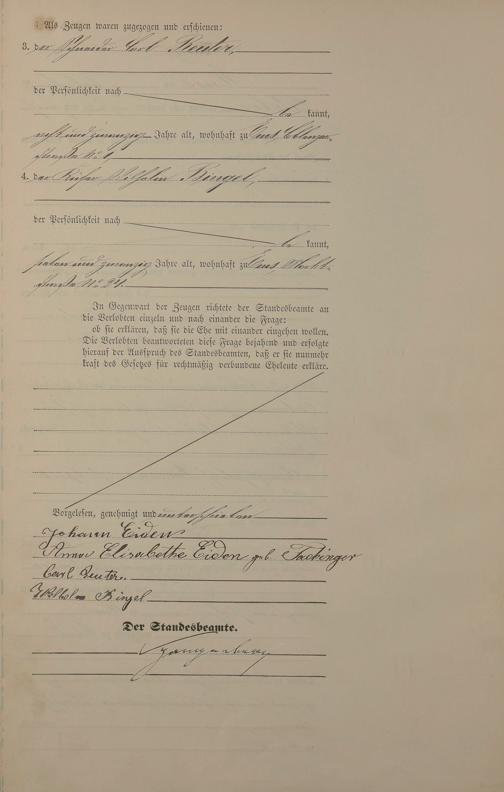 Als Zeugen waren zugezogen und erschienen:
3. der Schneider Carl Reuter,
der Persönlichkeit nach
be kannt,
acht und zwanzig Jahre alt, wohnhaft zu Ems,
straße No
4. der Küfer Wilhelm Bingel,
der Persönlichkeit nach
be kannt,
sieben und zwanzig Jahre alt, wohnhaft zu Ems,
straße No 24.
In Gegenwart der Zeugen richtete der Standesbeamte an
die Verlobten einzeln und nach einander die Frage:
ob sie erklären, daß sie die Ehe mit einander eingehen wollen.
Die Verlobten beantworteten diese Frage bejahend und erfolgte
hierauf der Ausspruch des Standesbeamten, daß er sie nunmehr
kraft des Gesetzes für rechtmäßig verbundene Eheleute erkläre.
Vorgelesen, genehmigt und unterschrieben
Johann Eiden
Anna Elisabethe Eiden geb. Fackinger
Carl Reuter.
Wilhelm Bingel
Der Standesbeamte.